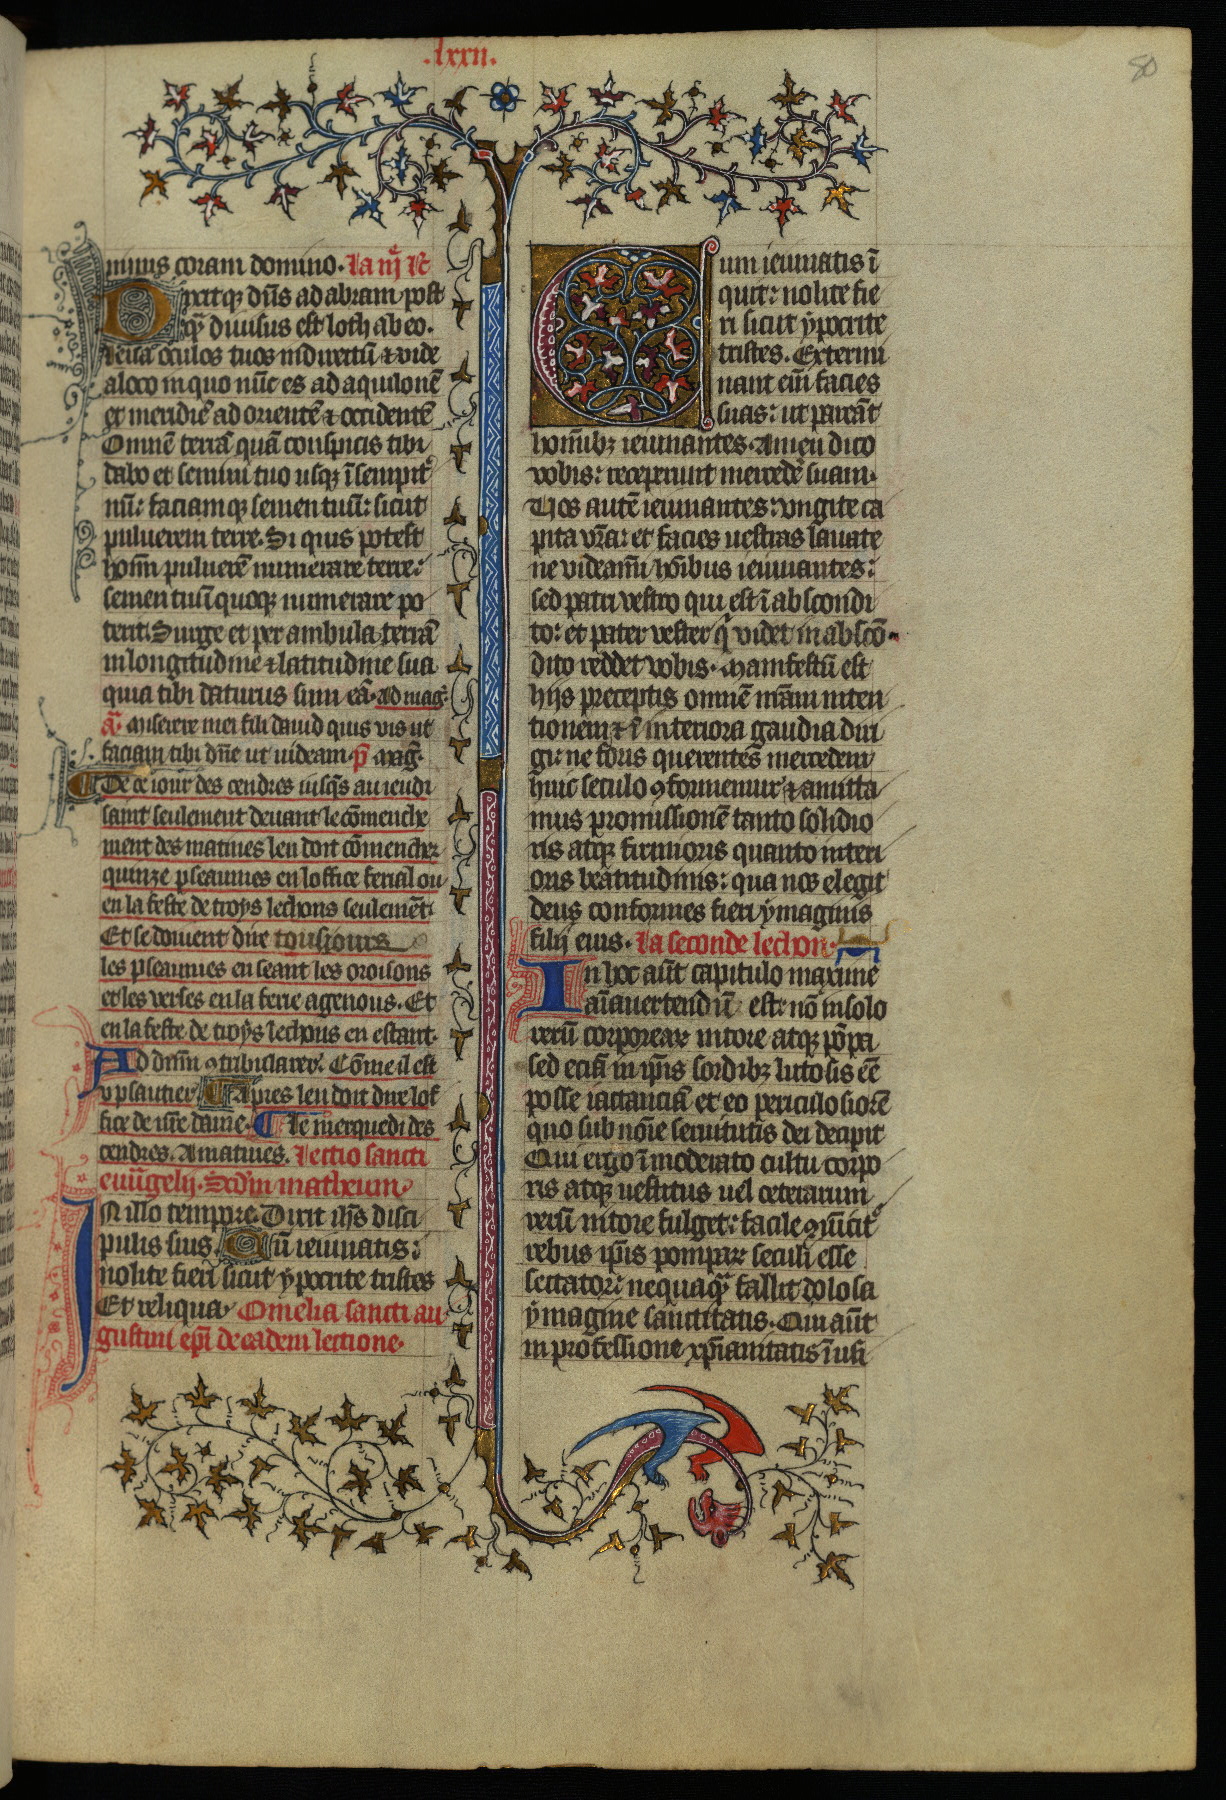 .lxxii.
80
minus coram domino. La iij Re
Dixitq dns ad abram post
q̃ diuisus est loth ab eo.
leua oculos tuos in directũ ⁊ vide
a loco in quo nũc es ad aquilonẽ
et meridiẽ ad orientẽ ⁊ occidentẽ
Omnẽ terrã quã conspicis tibi
dabo et semini tuo usq; ĩ sempit̾
nũ: faciamq; semen tuũ: sicut
puluerem terre. Si quis potest
hom̃ puluerẽ numerare terre:
semen tuũ quoq; numerare po
terit. Surge et perambula terrã
in longitudine ⁊ latitudine sua
quia tibi daturus sum eã. ad mag̃.
ã. Miserere mei fili dauid quis vis ut
faciam tibi dñe ut uideam. p̃ mag̃.
¶ De ce iour des cendres iusq̃s au ieudi
saint seulement deuant le cõmenche
ment des matines len doit cõmencher
quinze pseaumes en loffice ferial ou
en la feste de troys lechons seulemẽt.
Et se doiuent dire tousiours
les pseaumes en seant les oroisons
et les verses en la ferie agenous. Et
en la feste de troys lechons en estant.
Ad dñm ꝯtribularer. Cõme il est
v psautier. ¶ Apres len doit dire lof
fice de nr̃e dame. ¶ Le merquedi des
cendres. A matines. Lectio sancti
euũgelij. Scd̾m matheum.
IN illo tempre. Dixit ihs disci
pulis suis. Cũ ieiunatis:
nolite fieri sicut ypocrite tristes
Et reliqua. Omelia sancti au
gustini ep̃i de eadem lectione.
Cum ieiunatis ĩ
quit: nolite fie
ri sicut ypocrite
tristes. Extermi
nant eĩm facies
suas: ut pareãt
hom̃ibꝫ ieiunantes. Amen dico
vobis: receperunt mercedẽ suam.
Vos autẽ ieiunantes: vngite ca
pita vr̃a: et facies uestras lauate
ne videam̃i hõibus ieiunantes:
sed patri vestro qui est ĩ abscondi
to: et pater vester q̃ videt in abscõ
dito reddet vobis. Manifestũ est
hijs preceptis omnẽ nr̃am inten
tionem ⁊ ĩ interiora gaudia diri
gi: ne foris querentes mercedem
huic seculo ꝯformemur ⁊ amitta
mus promissionẽ tanto solidio
ris atq; firmioris quanto interi
oris beatitudinis: qua nos elegit
deus conformes fieri ymaginis
filij eius. La seconde lechon.
In hoc aũt capitulo maxime
aĩauertendũ est: nõ in solo
rerũ corporeaꝝ nitore atq; põpa
sed eciã in ip̃is sordibꝫ lutosis eẽ
posse iactanciã et eo periculosiorẽ
quo sub noĩe seruitutis dei decipit
Qui ergo ĩmoderato cultu corpo
ris atq; uestitus uel ceterarum
rerũ nitore fulget: facile ꝯuĩcit̾
rebus ip̃is pompaꝝ seculi esse
sectator: nequaq̃ fallit dolosa
ymagine sanctitatis. Qui aũt
in professione xp̃ianitatis ĩusi